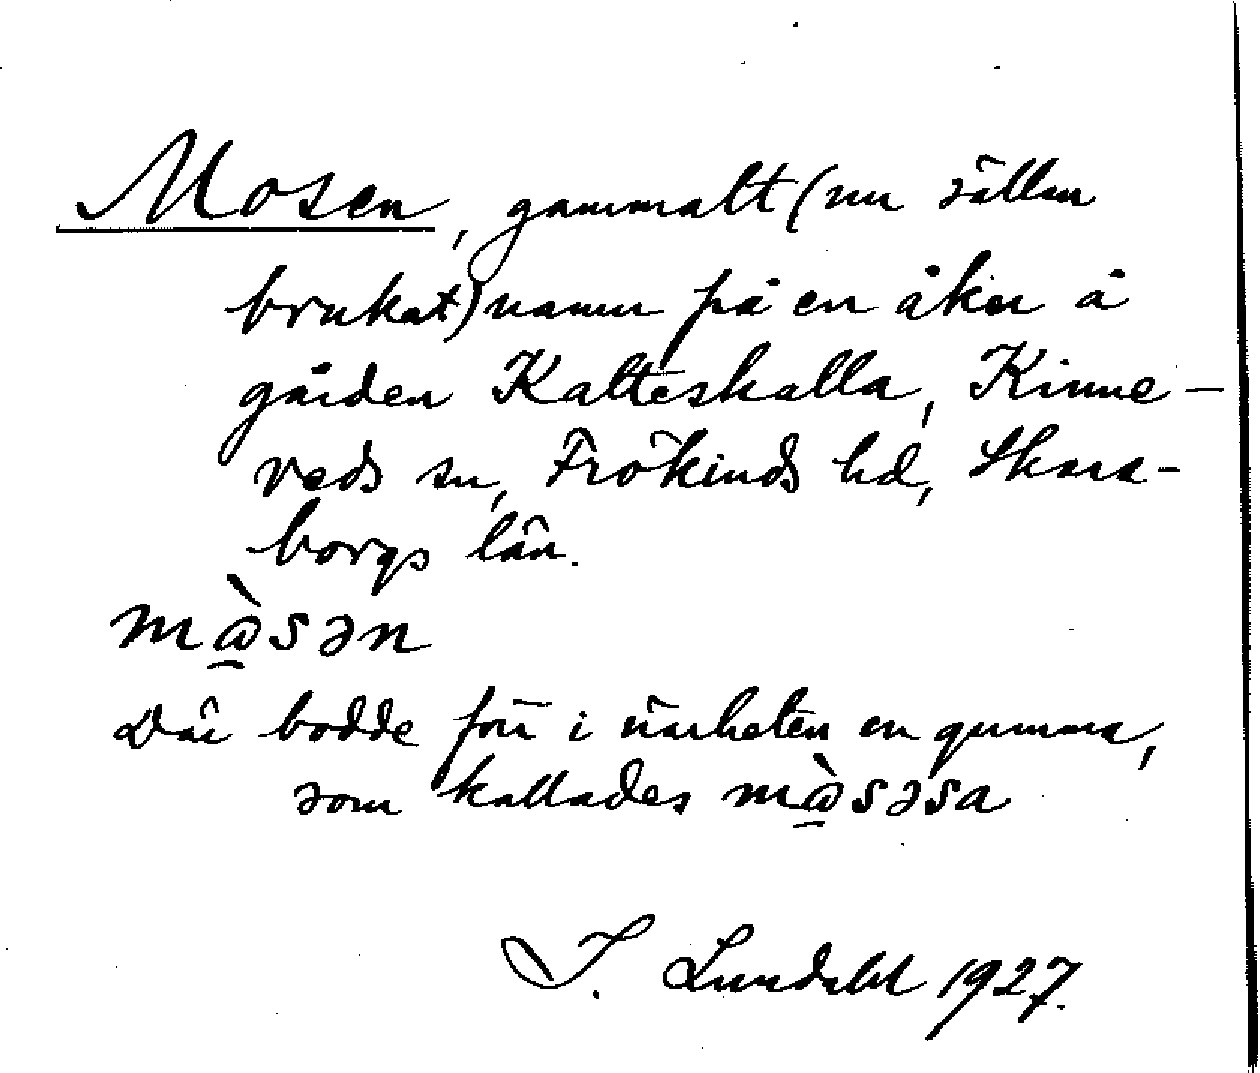 Mosen, gammalt (nu sällan
brukat) namn på en åker å
gården Kalteskalla, Kinne-
veds sn, Frökinds hd, Skara-
borgs län.
m@̱̀sən
Där bodde förr i närheten en gumma,
som kallades m@̱̀səsa
I. Lundahl 1927.